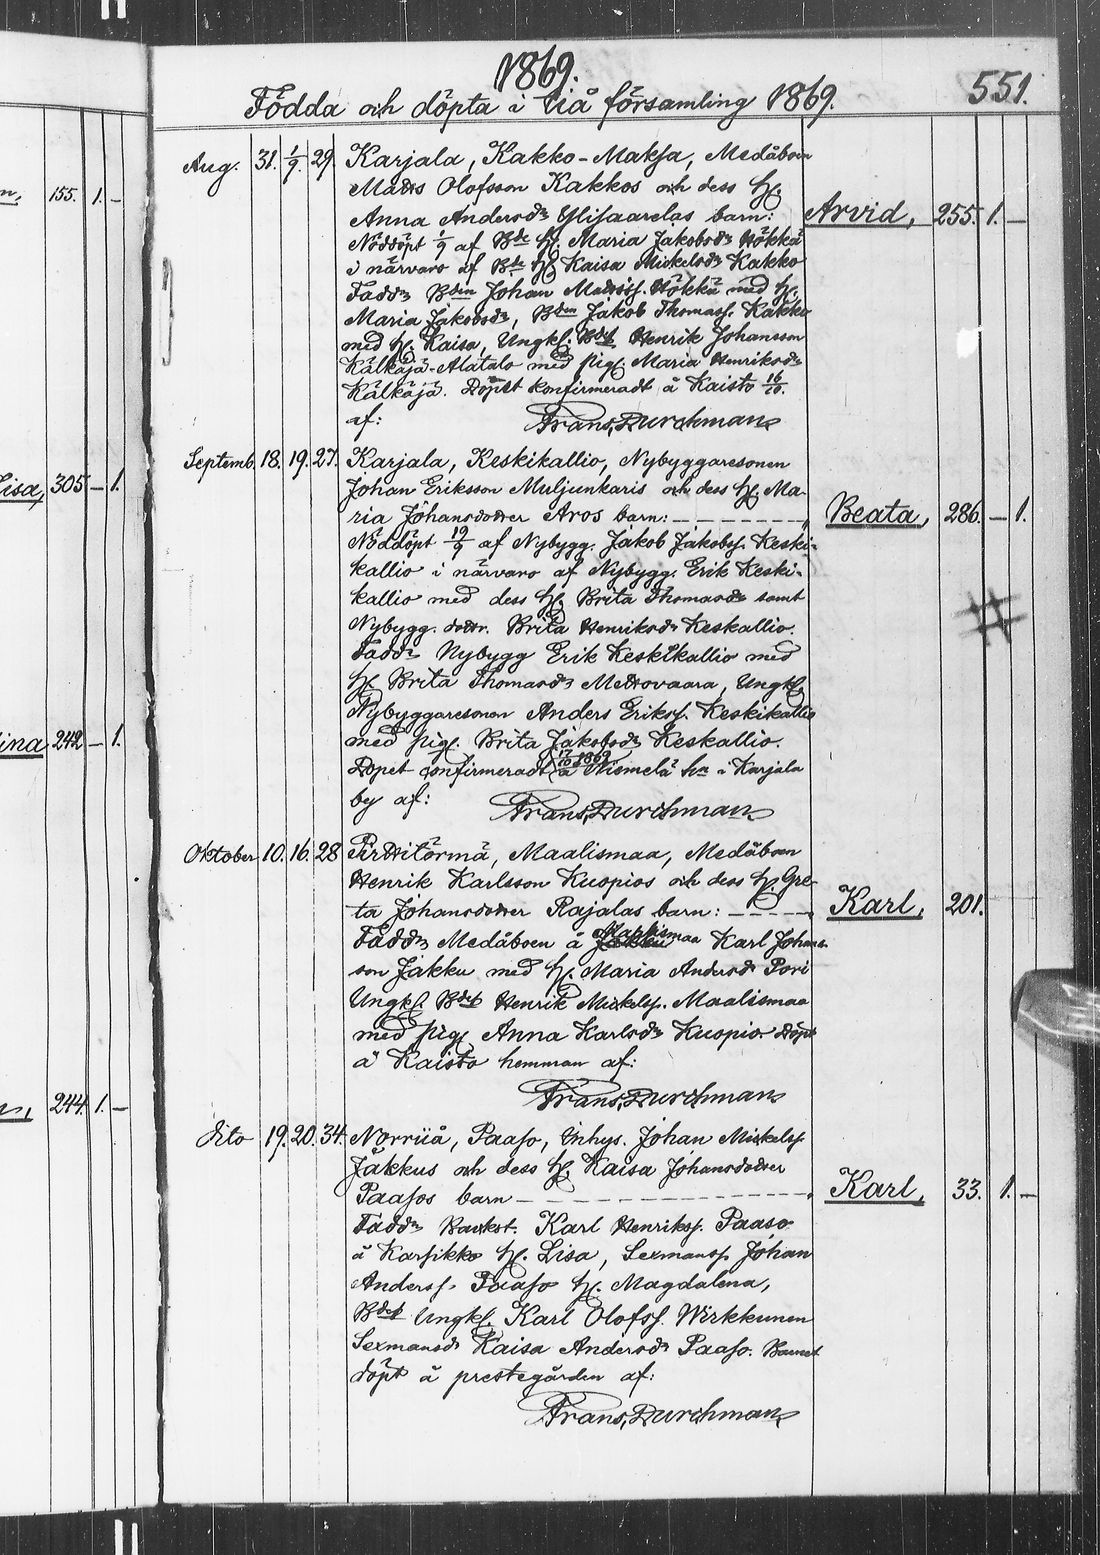 1869.
Födda och döpta i Iiå församling 1869. 551.
n, 155. 1. –
Lisa, 305 – 1.
lina 242 – 1.
n, 244 1. –
Aug. 31. 1/9. 29 Karjala, Kakko-Maksa, Medåboen
Matts Olofsson Kakkos och dess H.
Anna Andersdr Ylisaarelas barn: Arvid, 255. 1. –
Nöddöpt 1/9 af Bde H. Maria Jakobsdr Hökkä
i närvaro af Bde H. Kaisa Mickelsdr Kakko
Faddr Bden Johan Matsss. Hökkä med H.
Maria Jakobsdr, Bden Jakob Thomass. Kakko
med H. Kaisa, Ungk. Bdes Henrik Johansson
Kälkäjä-Alatalo med pig. Maria Henriksdr
Kälkäjä. Dopet konfirmeradt å Kaisto 16/10.
af: Frans Durchman
Septemb. 18. 19. 27. Karjala, Keskikallio, Nybyggaresonen
Johan Eriksson Muljunkaris och dess H. Ma-
ria Johansdotter Aros barn: Beata, 286. – 1.
Nöddöpt 19/9 af Nybygg. Jakob Jakobss. Keski-
kallio i närvaro af Nybygg. Erik Keski-
kallio med dess H. Brita Thomasdr samt
Nybygg. dottr. Brita Henriksdr Keskallio.
Faddr Nybygg Erik Keskikallio med
H. Brita Thomasdr Mettovaara, Ungk.
Nybyggaresonen Anders Erikss. Keskikallio
med pig. Brita Jakobsdr Keskallio.
17/10 1869
Dopet confirmeradt å Niemelä hn i Karjala
by af: Frans Durchman
Oktober 10. 16. 28 Pirttitörmä, Maalismaa, Medåboen
Henrik Karlsson Kuopios och dess H. Gre-
ta Johansdotter Rajalas barn: Karl, 201.
Maalismaa
Faddr Medåboen å Jakku Karl Johans-
son Jakku med H. Maria Andersdr Pori
Ungk. Bdes Henrik Mickelss. Maalismaa
med pig. Anna Karlsdr Kuopio. Döpt
å Kaisto hemman af:
Frans Durchman
dito 19. 20. 34. Norriiå, Paaso, Inhys. Johan Mickelss.
Jäkkus och dess H. Kaisa Johansdotter
Paasos barn Karl, 33. 1. –
Faddr Backst. Karl Henrikss. Paaso
å Karsikko H. Lisa, Sexmanss Johan
Anderss. Paaso H. Magdalena,
Bdes Ungk. Karl Olofss. Wirkkunen
Sexmansdr Kaisa Andersdr Paaso. Barnet
döpt å prestegården af:
Frans Durchman